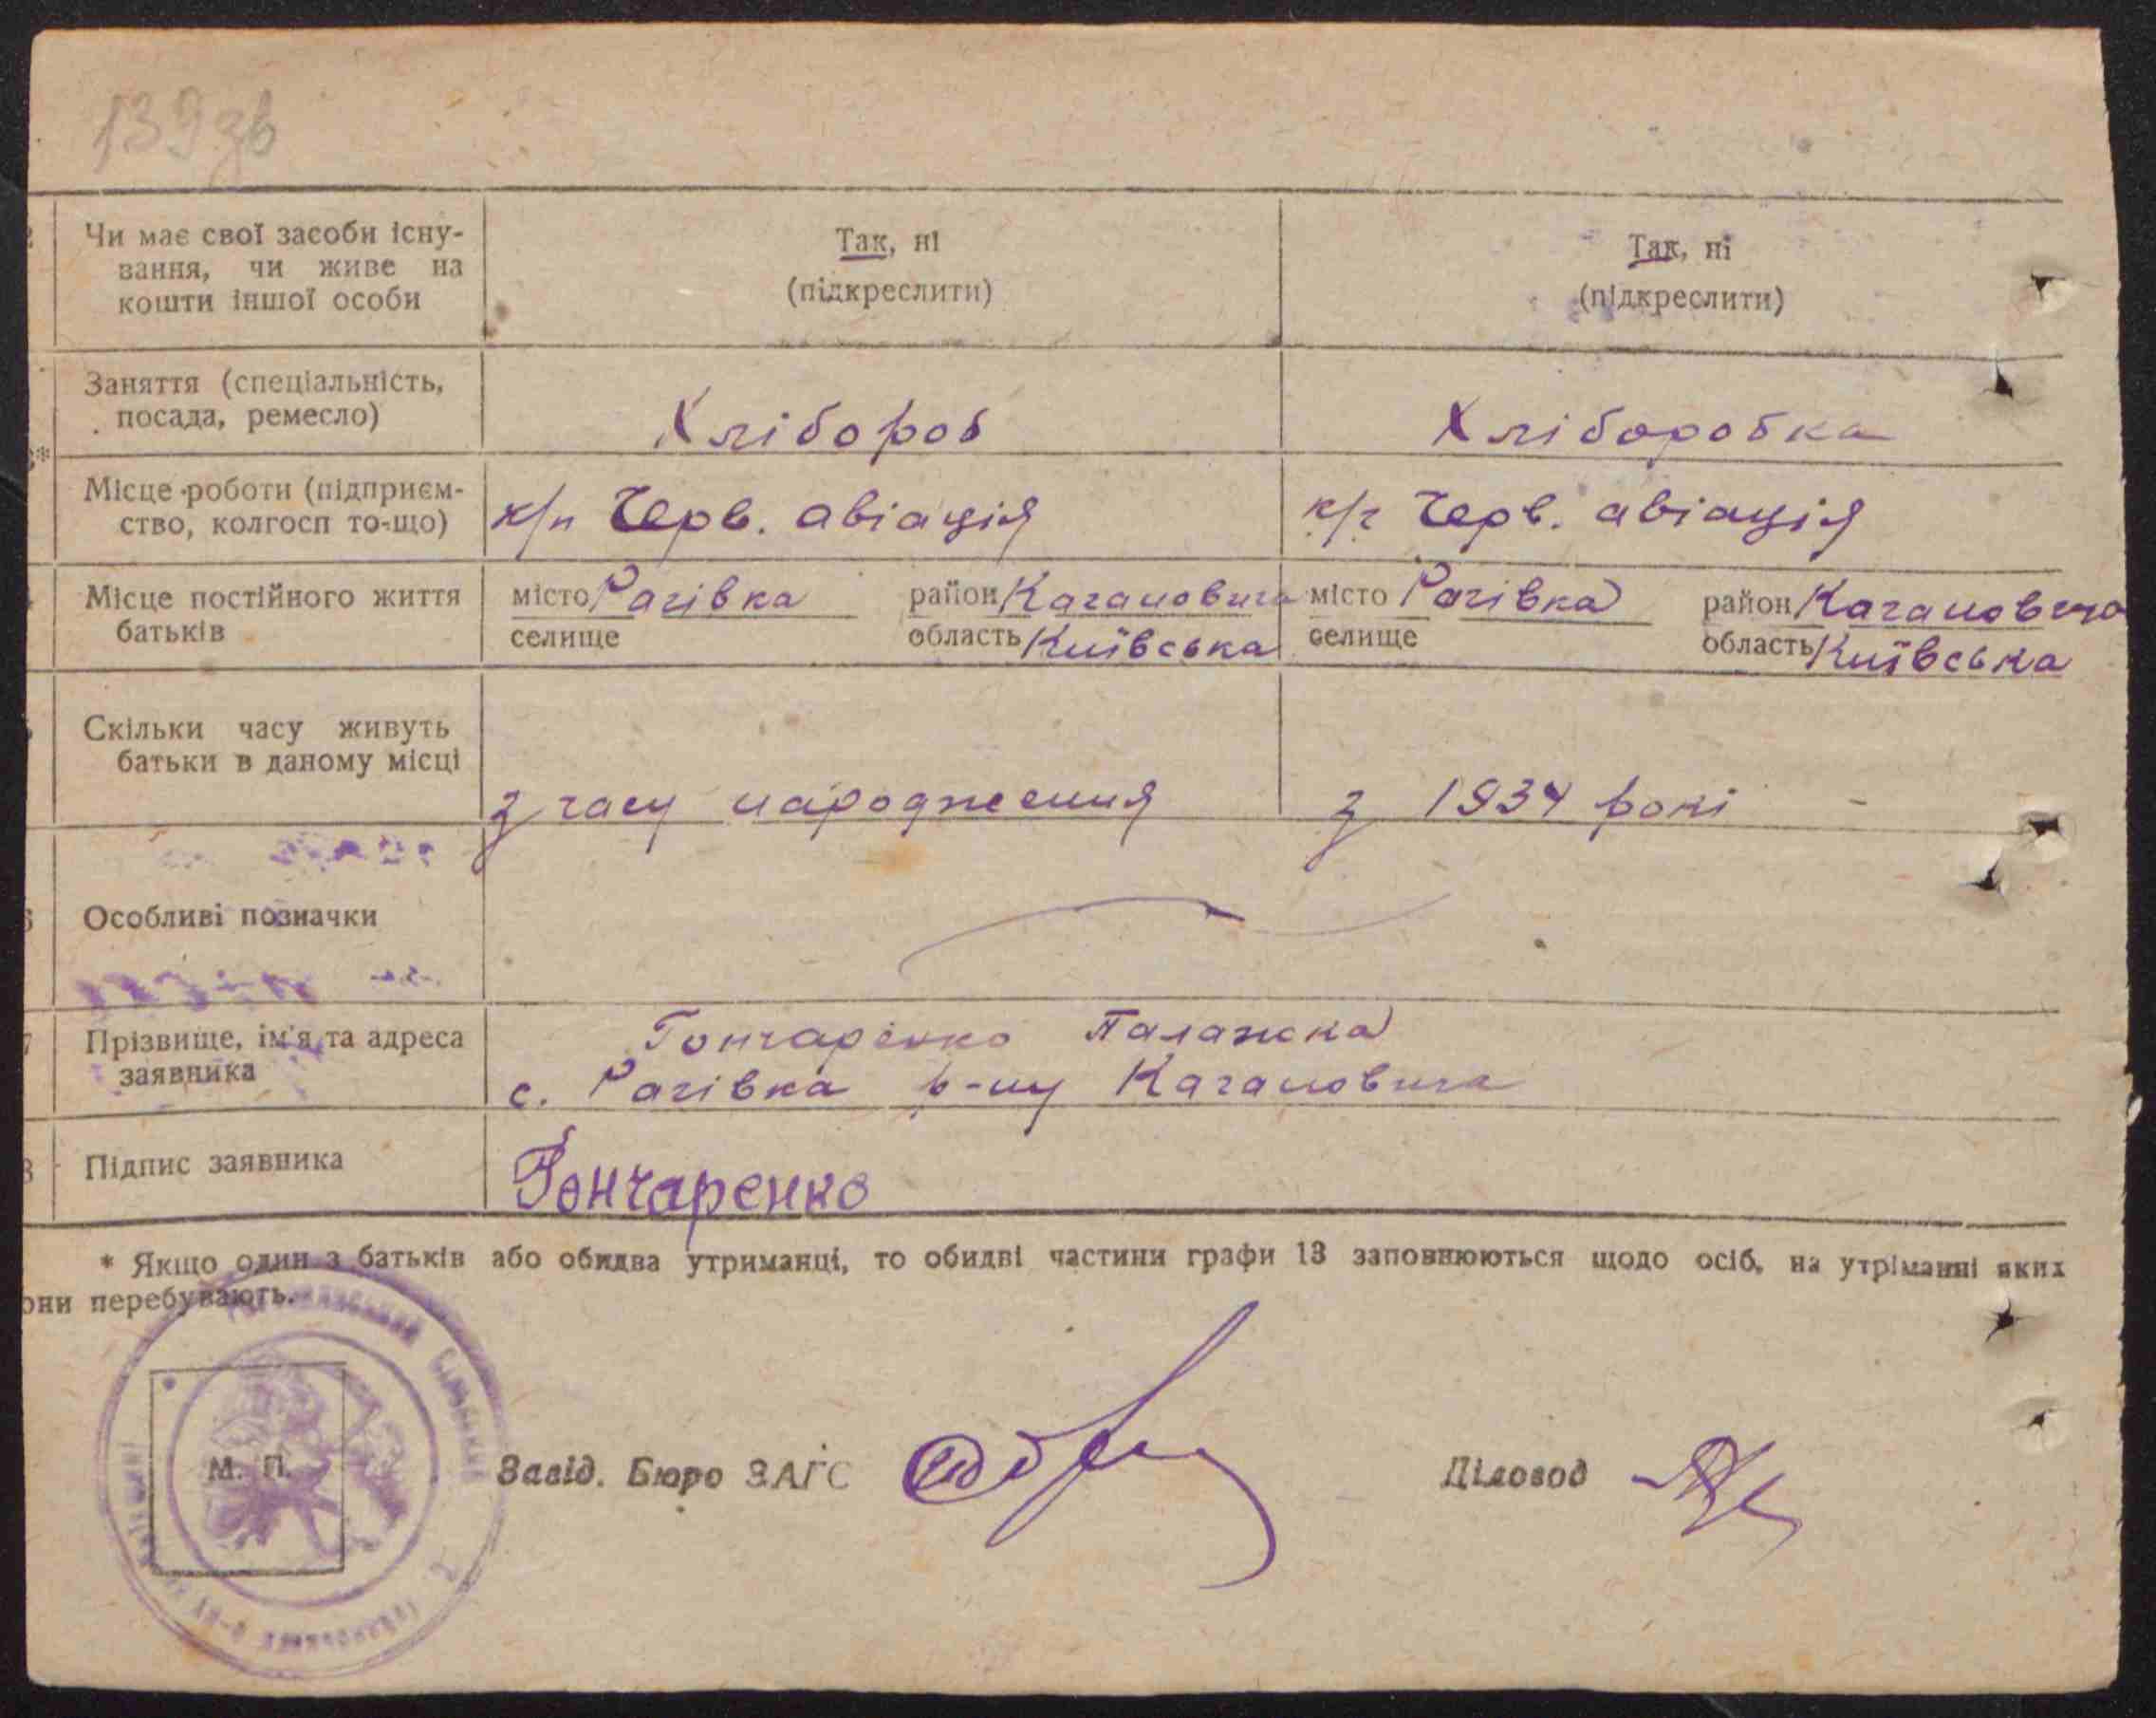 139зв
Чи має свої засоби існу-
вання, чи живе на
кошти іншої особи
Так, ні
(підкреслити)
Так, ні
(підкреслити)
Заняття (спеціальність,
посада, ремесло)
Хлібороб
Хліборобка
Місце роботи (підприєм-
ство, колгосп то-що)
к/г Черв. авіація
к/г Черв. авіація
Місце постійного життя
батьків
місто Рагівка район Кагановича
селище область Київська
місто Рагівка район Кагановича
селище область Київська
Скільки часу живуть
батьки в даному місці
з часу народження
з 1934 рокі
Особливі позначки
Прізвище, ім'я та адреса
заявника
Гончаренко Палажка
с. Рагівка р-ну Кагановича
Підпис заявника
Гончаренко
* Якщо один з батьків або обидва утриманці, то обидві частини графи 13 заповнюються щодо осіб, на утріманні яких
они перебувають.
М. П.
Завід. Бюро ЗАГС
Діловод